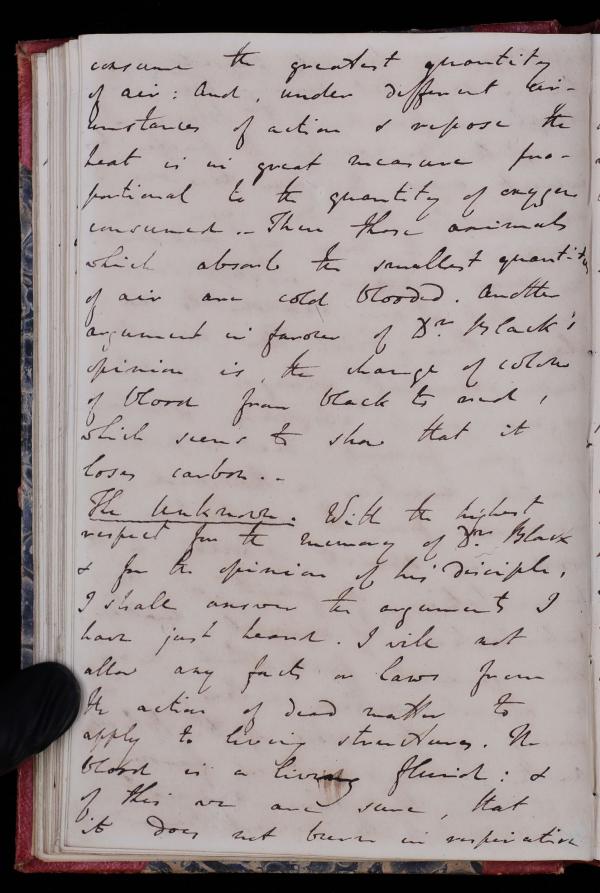 consume the greatest quantity
of air: and, under different cir-
cumstances of action & repose the
heat is in great measure pro-
portional to the quantity of oxygen
consumed. - Then those animals
which absorb the smallest quantity
of air are cold blooded. Another
argument in favour of Dr. Black's
opinion is, the change of colour
of blood from black to red,
which seems to show that it
loses carbon. -
The Unknown. With the highest
respect for the memory of Dr. Black
& for the opinion of his disciple,
I shall answer the arguments I
have just heard. I will not
allow any facts or laws from
the action of dead matter to
apply to living structures. The
blood is a living fluid: &
of this we are sure, that
it does not burn in respiration